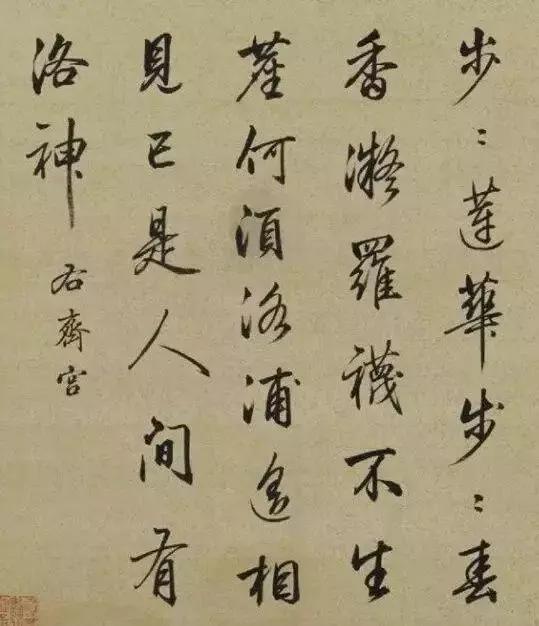 步〻蓮華步〻春
香凝羅襪不生
塵何須洛浦遙相
見已是人間有
洛神 右齊宮